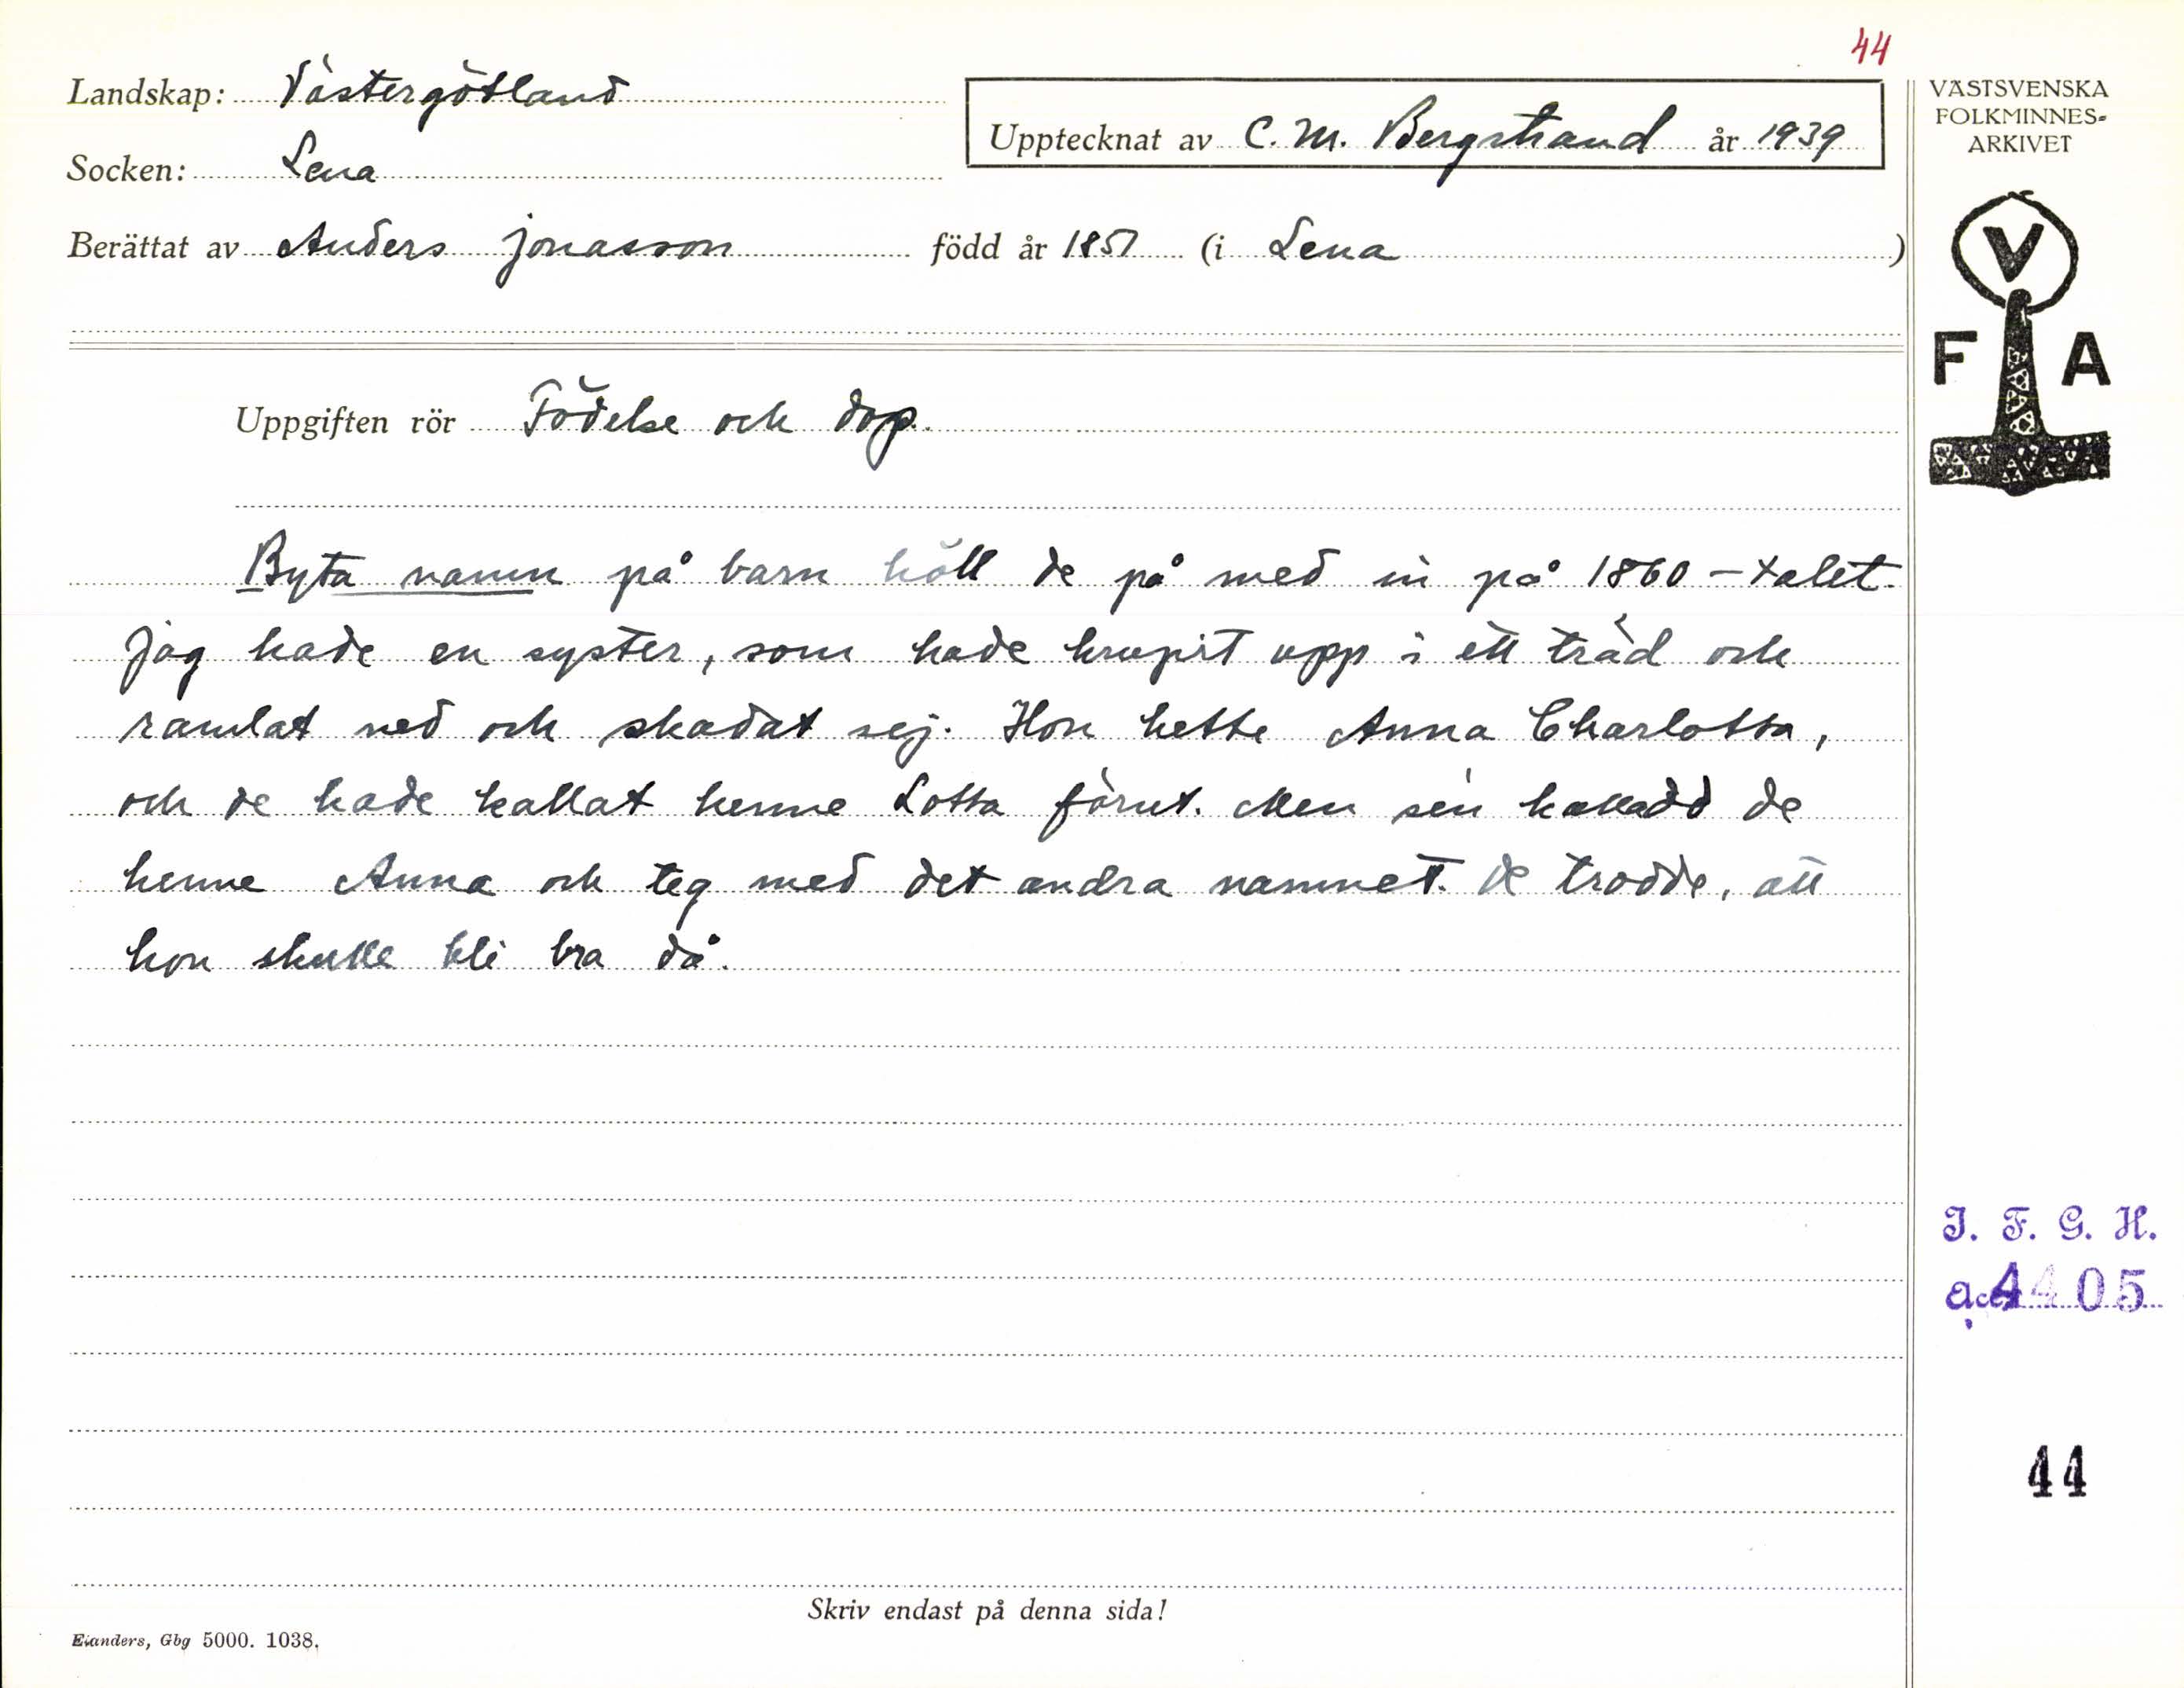 44
Landskap: Västergötland
Upptecknat av C. M. Bergstrand år 1939
Socken: Lena
Berättat av Anders Jonasson född år 1857 (i Lena)
VÄSTSVENSKA
FOLKMINNES-
ARKIVET
V
F A
Uppgiften rör Födelse och dop.
Byta namn på barn höll de på med in på 1860-talet.
Jag hade en syster, som hade krupit upp i ett träd och
ramlat ned och skadat sej. Hon hette Anna Charlotta,
och de hade kallat henne Lotta förut. Men sen kalladd de
henne Anna och teg med det andra namnet. De trodde, att
hon skulle bli bra då.
I. F. G. H.
acc. 4405
44
Skriv endast på denna sida!
Elanders, Gbg 5000. 1038.